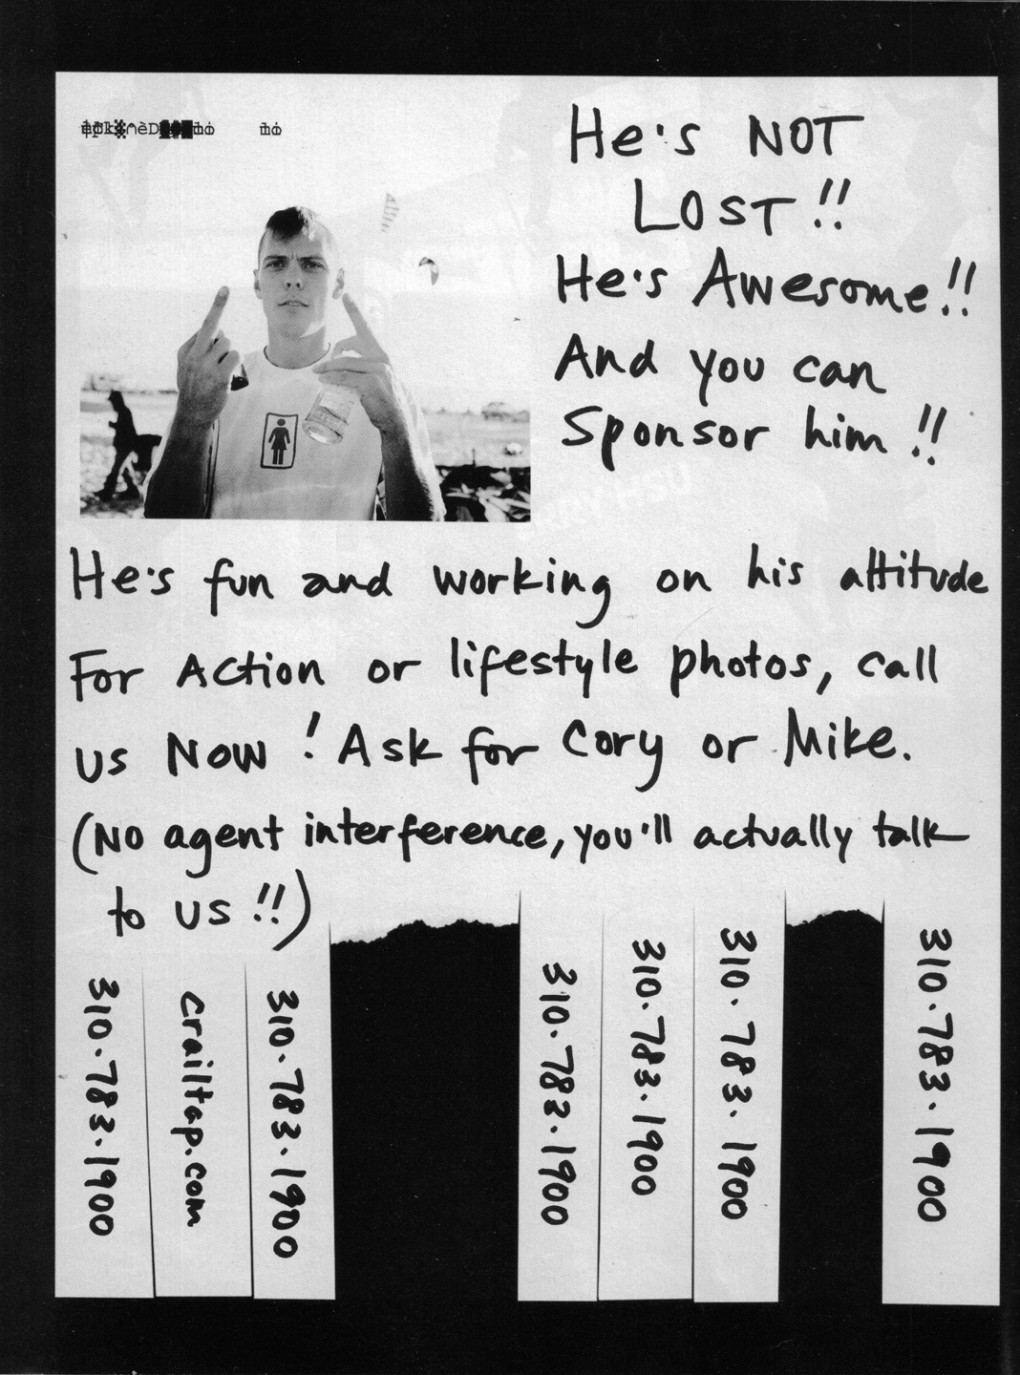 He's NOT
LOST!!
He's Awesome!!
And you can
Sponsor him!!
He's fun and working on his attitude
For Action or lifestyle photos, call
us Now! Ask for Cory or Mike.
(No agent interference, you'll actually talk
to us!!)
310.783.1900
crailtap.com
310.783.1900
310.783.1900
310.783.1900
310.783.1900
310.783.1900